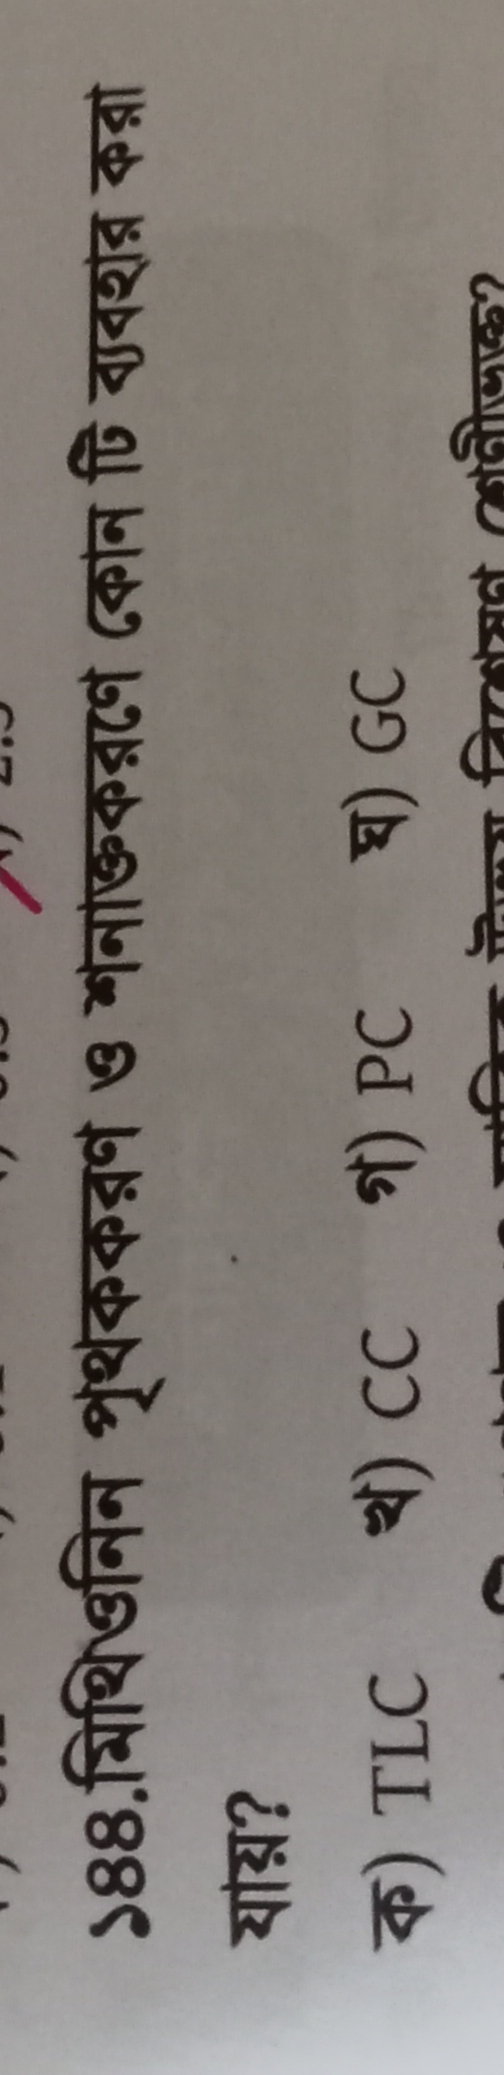 ১৪৪.মিথিওনিন পৃথককরণ ও শনাক্তকরণে কোন টি ব্যবহার করা
যায়?
ক) TLC খ) CC গ) PC ঘ) GC